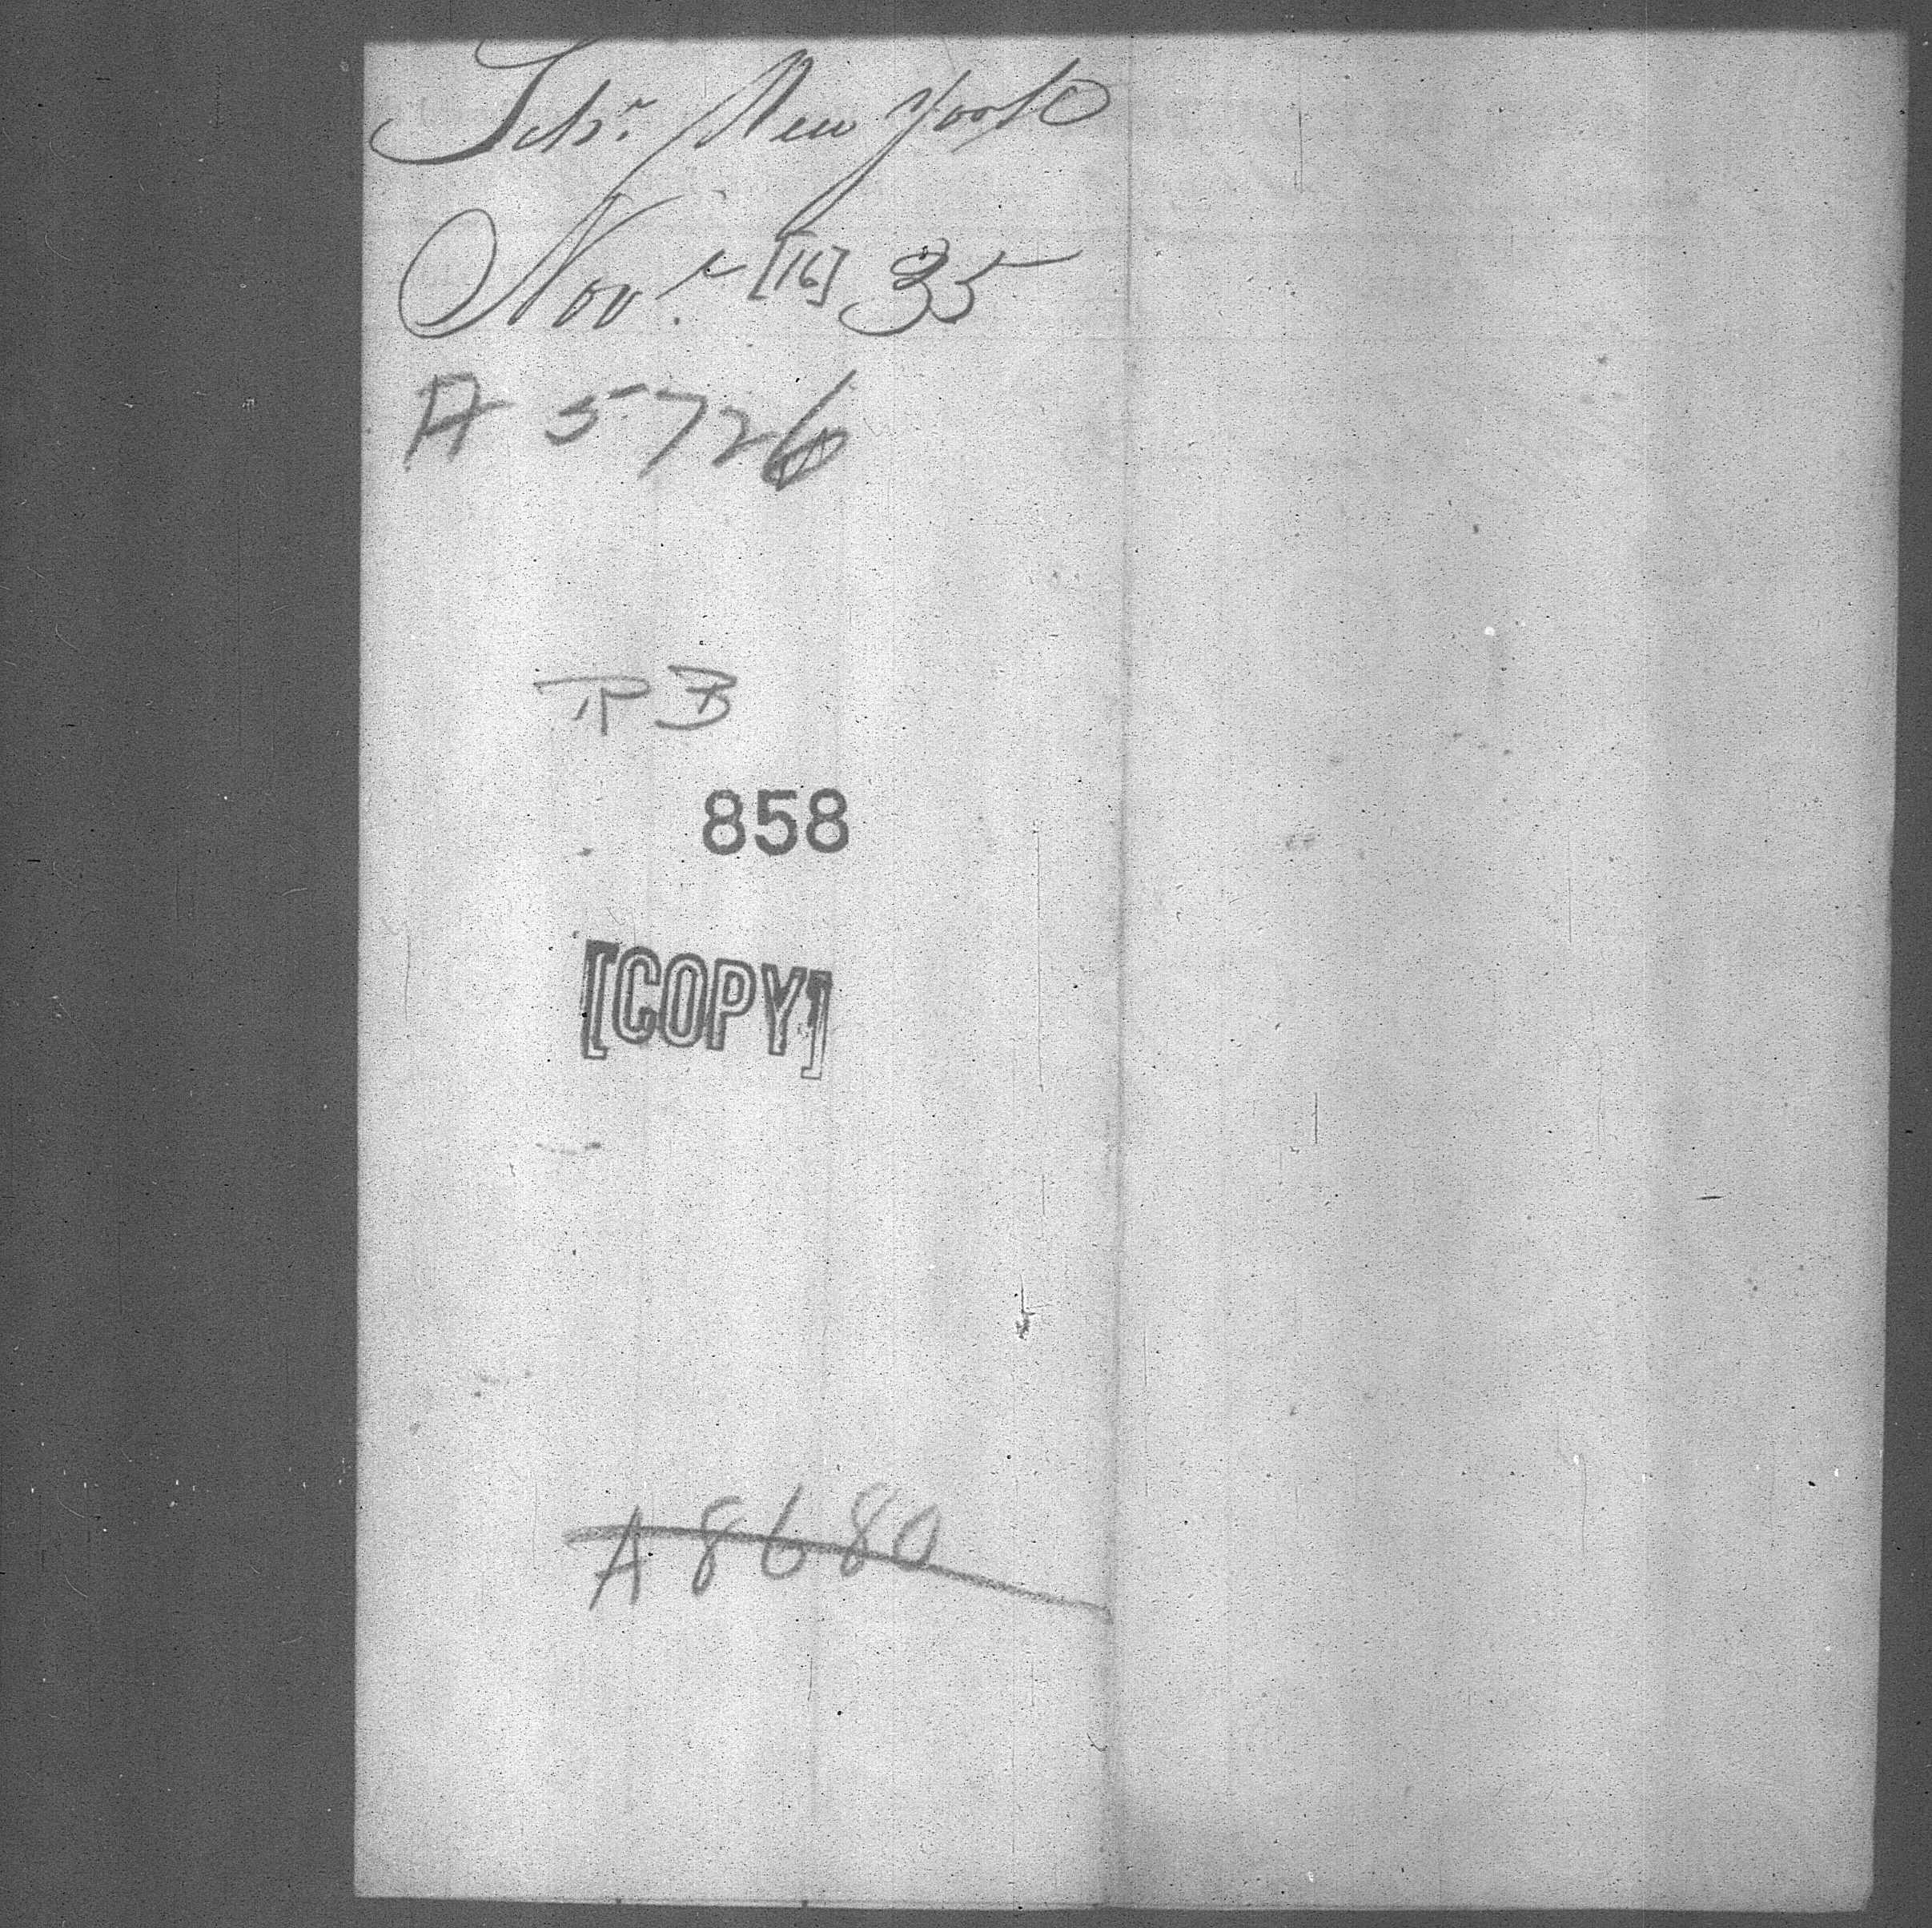 Schr. New York
Novr. [16] 35
A 5726
858
[COPY]
A 8680